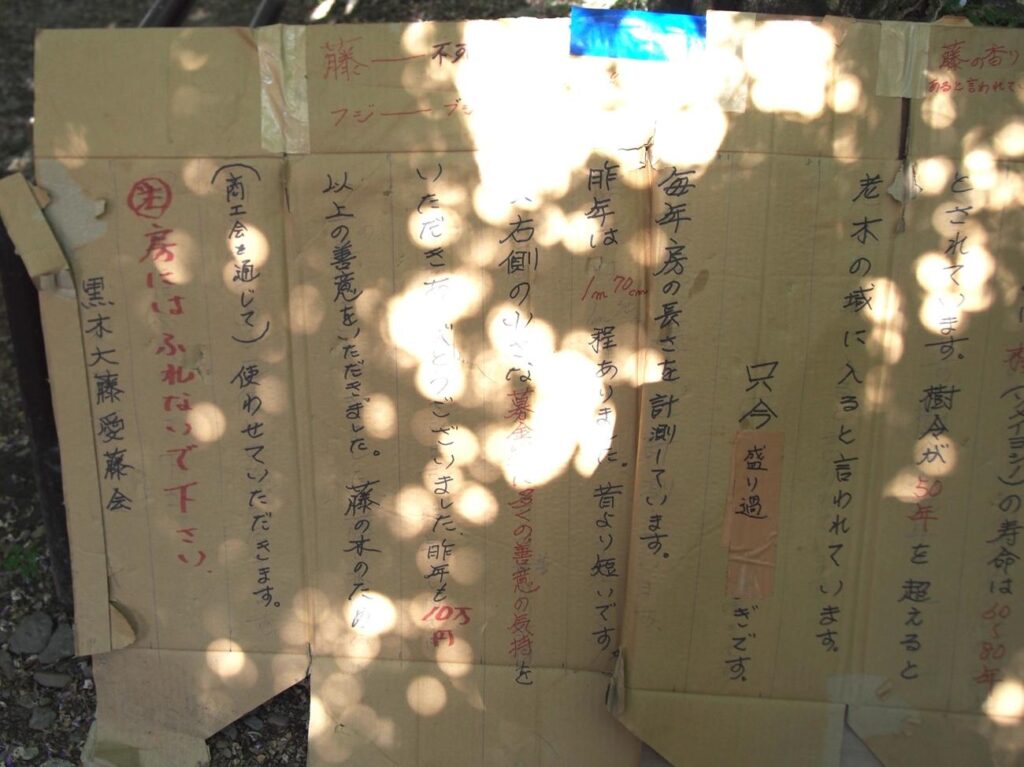 藤の香り
あると言われてい
藤 — 不
フジ — ブ
(ソメイヨシノ)の寿命は60〜80年
とされています。樹令が50年を超えると
老木の域に入ると言われています。
只今盛り過ぎです。
毎年房の長さを計測しています。
昨年は1m70cm程ありました。昔より短いです。
右側の小さな募金に多くの善意の気持を
いただきありがとうございました。昨年も10万円
以上の善意をいただきました。藤の木のため
(商工会を通じて)使わせていただきます。
注 房にはふれないで下さい
黒木大藤愛藤会